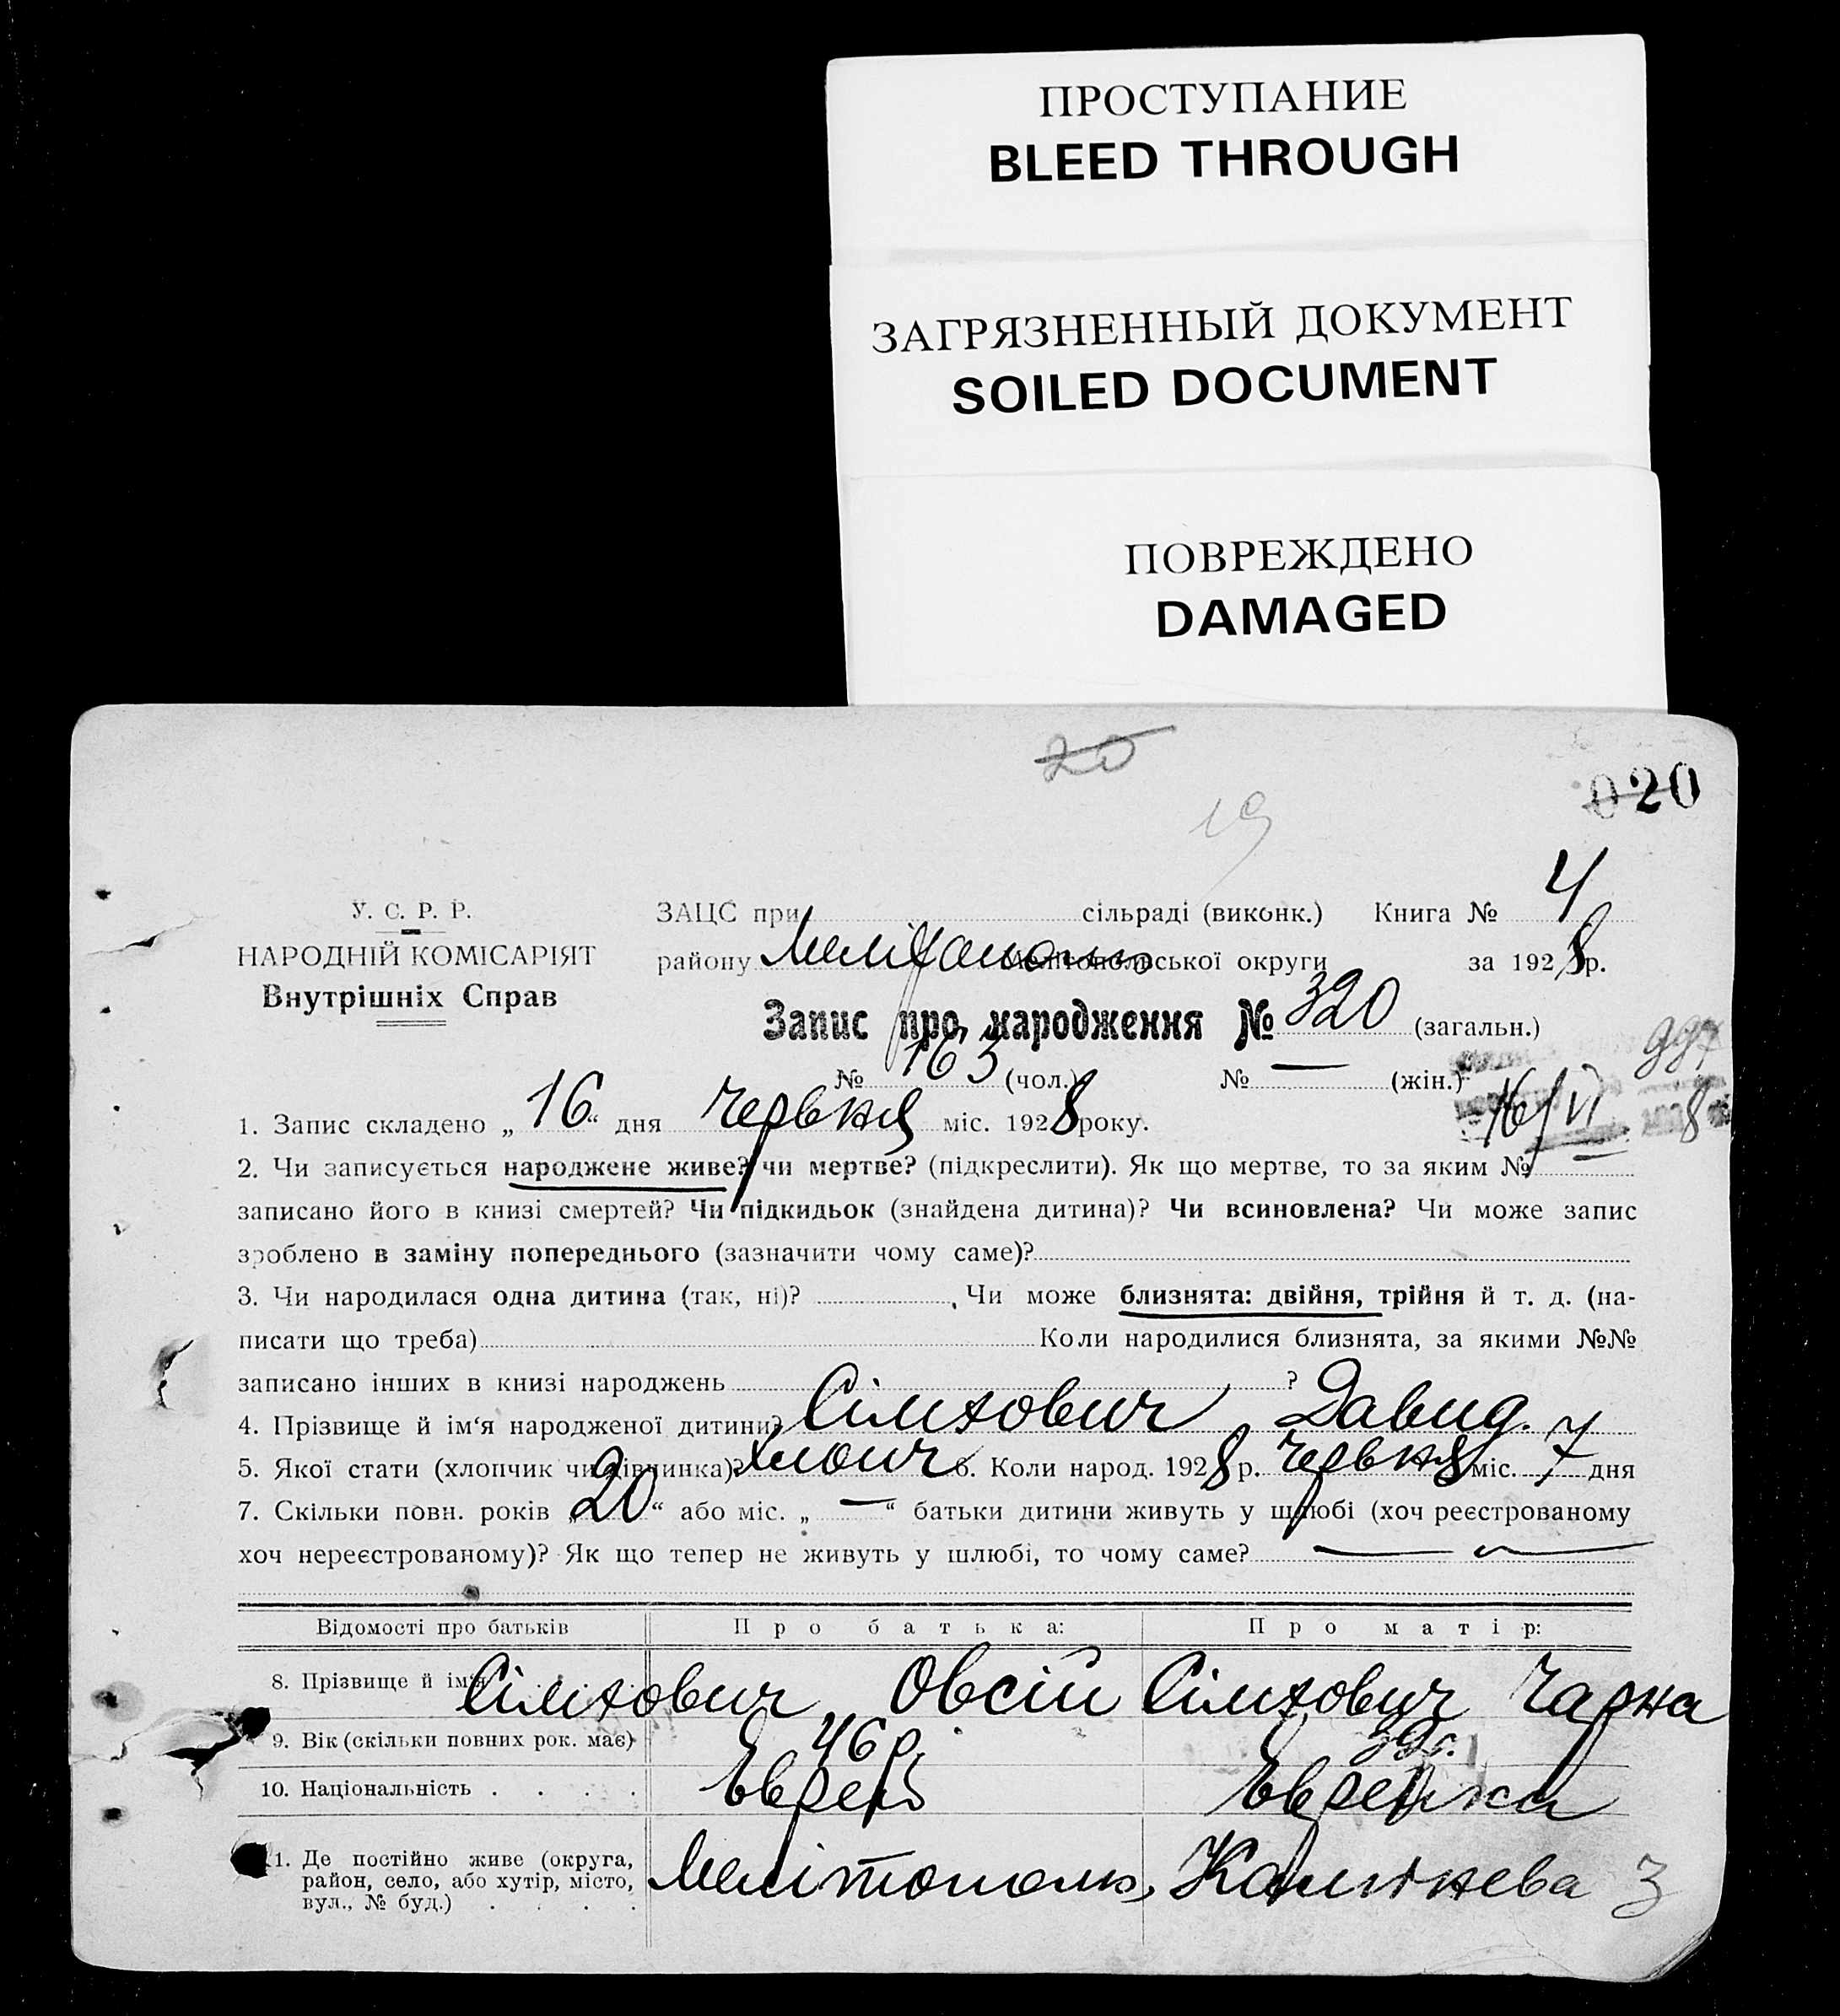 ПРОСТУПАНИЕ
BLEED THROUGH
ЗАГРЯЗНЕННЫЙ ДОКУМЕНТ
SOILED DOCUMENT
ПОВРЕЖДЕНО
DAMAGED
20
020
19
У. С. Р. Р.
НАРОДНІЙ КОМІСАРІЯТ
Внутрішніх Справ
ЗАЦС при сільраді (виконк.) Книга № 4
району Мелітополь Мелітопольської округи за 1928 р.
Запис про народження № 320 (загальн.)
№ 163 (чол.) № — (жін.)
16/VI 8
1. Запис складено „16“ дня червня міс. 1928 року.
2. Чи записується народжене живе? чи мертве? (підкреслити). Як що мертве, то за яким №
записано його в книзі смертей? Чи підкидьок (знайдена дитина)? Чи всиновлена? Чи може запис
зроблено в заміну попереднього (зазначити чому саме)?
3. Чи народилася одна дитина (так, ні)? , Чи може близнята: двійня, трійня й т. д. (на-
писати що треба) Коли народилися близнята, за якими №№
записано інших в книзі народжень ?
4. Прізвище й ім‘я народженої дитини? Сімхович Давид.
5. Якої стати (хлопчик чи дівчинка)? хлопч 6. Коли народ. 1928 р. червня міс. 7 дня
7. Скільки повн. років „20“ або міс. „—“ батьки дитини живуть у шлюбі (хоч реєстрованому
хоч нереєстрованому)? Як що тепер не живуть у шлюбі, то чому саме? —
Відомості про батьків Про батька: Про матір:
8. Прізвище й ім‘я Сімхович Овсій Сімхович Чарна
9. Вік (скільки повних рок. має) 46 р. 39 р.
10. Національність . . . . Еврей Еврейка
11. Де постійно живе (округа,
район, село, або хутір, місто,
вул., № буд.) . . . . Мелітополь, Камінева 3